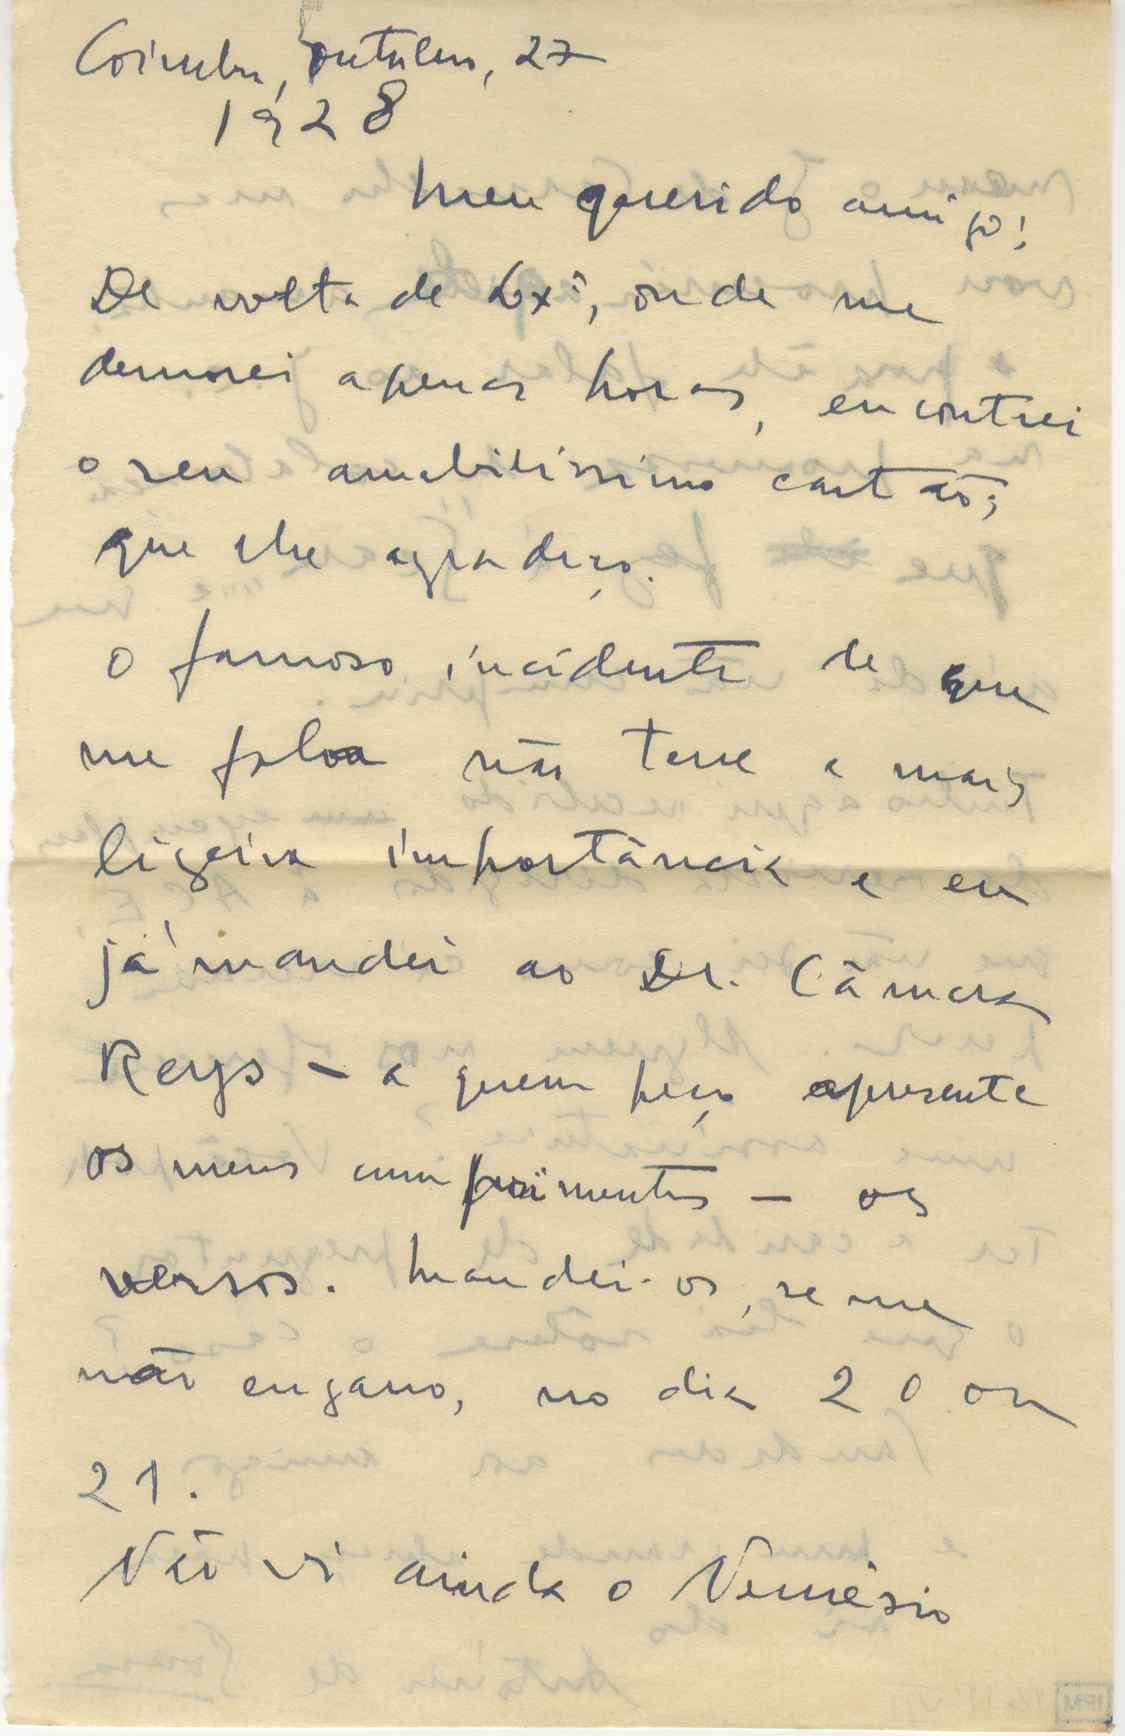 Coimbra, outubro, 27
1928
Meu querido amigo:
De volta de Lxª, onde me
demorei apenas horas, encontrei
o seu amabilíssimo cartão,
que lhe agradeço.
O famoso incidente de que
me falou não teve a mais
ligeira importância e eu
já mandei ao Dr. Câmara
Reys – a quem peço apresente
os meus cumprimentos – os
versos. Mandei-os, se me
não engano, no dia 20 ou
21.
Não vi ainda o Nemésio